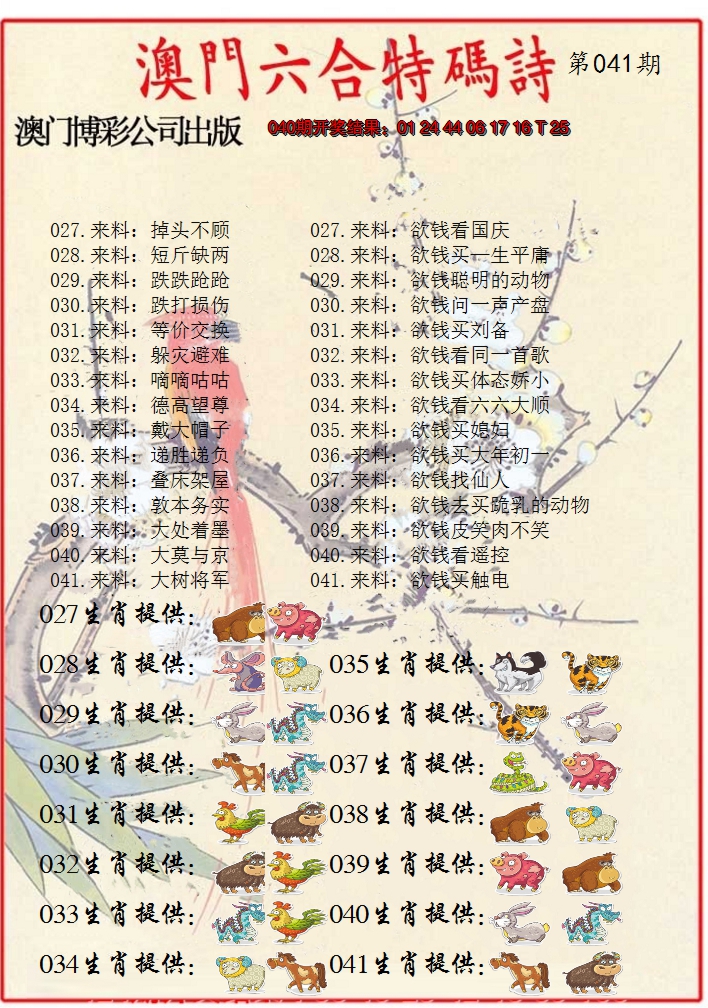 澳門六合特碼詩 第041期
澳门博彩公司出版 040期开奖结果：01 24 44 06 17 16 T 25
027.来料：掉头不顾 027.来料：欲钱看国庆
028.来料：短斤缺两 028.来料：欲钱买一生平庸
029.来料：跌跌跄跄 029.来料：欲钱聪明的动物
030.来料：跌打损伤 030.来料：欲钱问一声产盘
031.来料：等价交换 031.来料：欲钱买刘备
032.来料：躲灾避难 032.来料：欲钱看同一首歌
033.来料：嘀嘀咕咕 033.来料：欲钱买体态娇小
034.来料：德高望尊 034.来料：欲钱看六六大顺
035.来料：戴大帽子 035.来料：欲钱买媳妇
036.来料：递胜递负 036.来料：欲钱买大年初一
037.来料：叠床架屋 037.来料：欲钱找仙人
038.来料：敦本务实 038.来料：欲钱去买跪乳的动物
039.来料：大处着墨 039.来料：欲钱皮笑肉不笑
040.来料：大莫与京 040.来料：欲钱看遥控
041.来料：大树将军 041.来料：欲钱买触电
027生肖提供：
028生肖提供： 035生肖提供：
029生肖提供： 036生肖提供：
030生肖提供： 037生肖提供：
031生肖提供： 038生肖提供：
032生肖提供： 039生肖提供：
033生肖提供： 040生肖提供：
034生肖提供： 041生肖提供：